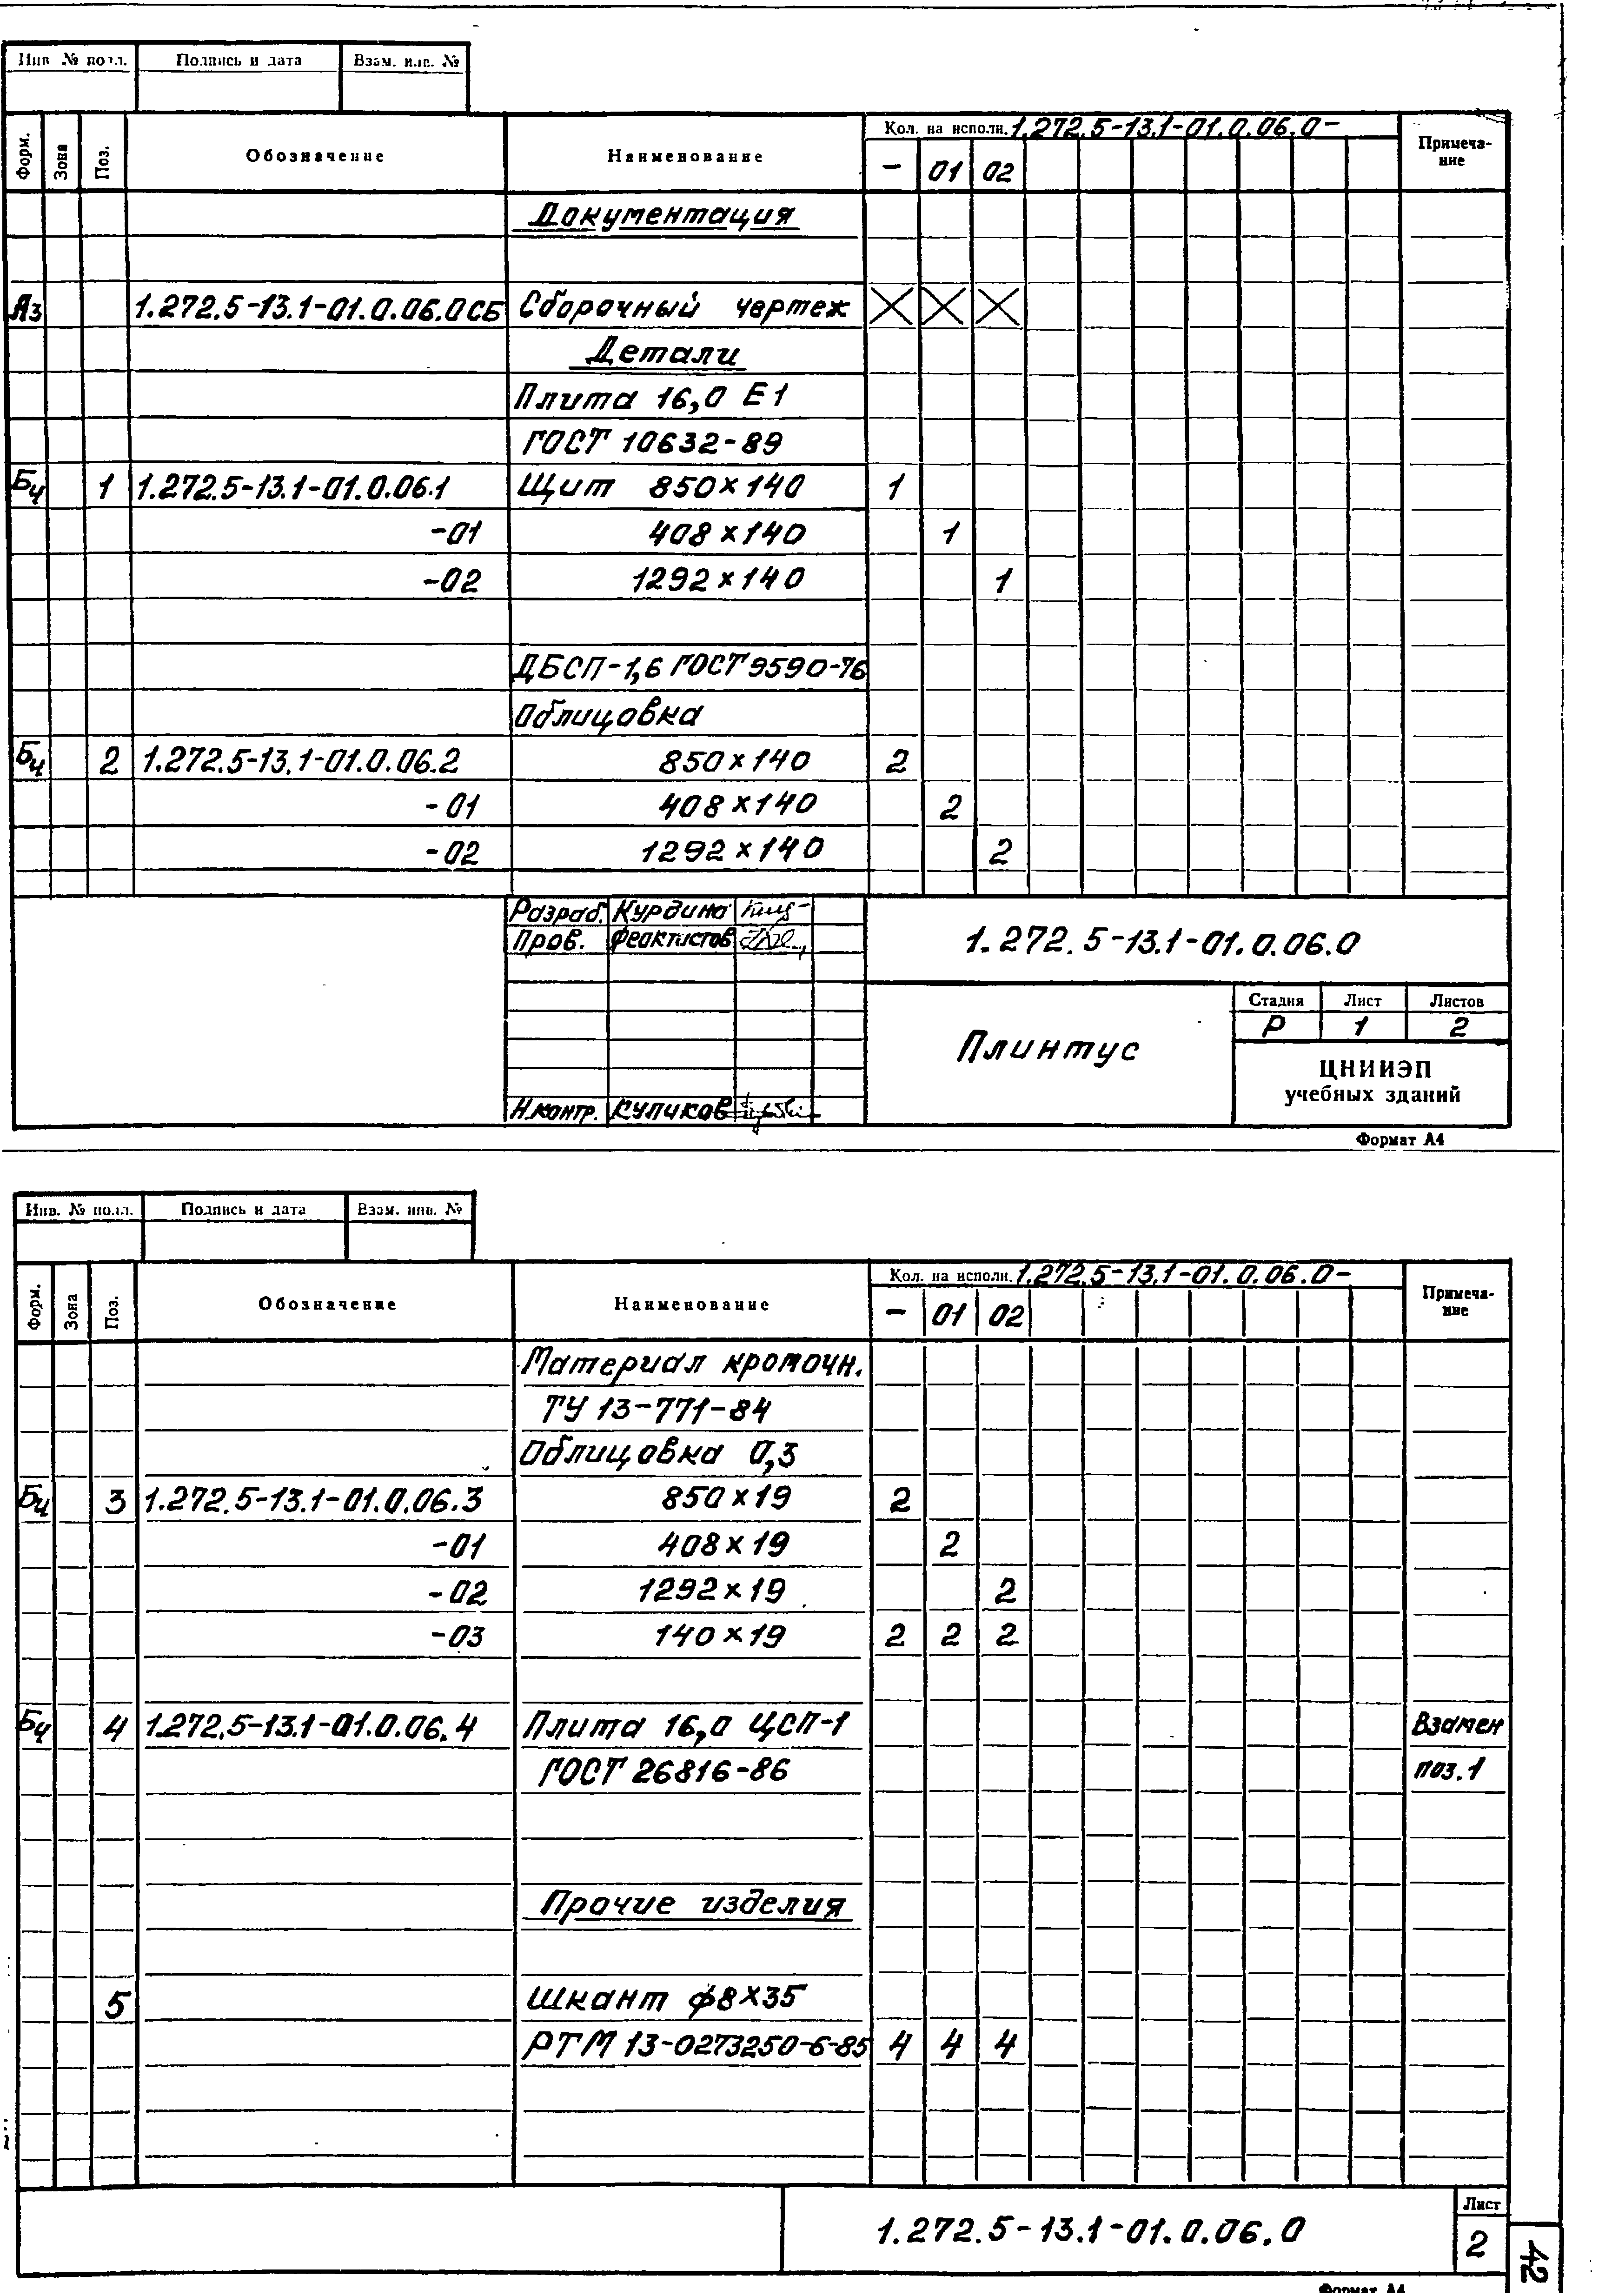 Инв № подл. Подпись и дата Взам. инв. №
Форм. Зона Поз. Обозначение Наименование Кол. на исполн. 1.272.5-13.1-01.0.06.0- Примеча-
ние
– 01 02
Документация
А3 1.272.5-13.1-01.0.06.0СБ Сборочный чертеж X X X
Детали
Плита 16,0 Е1
ГОСТ 10632-89
БЧ 1 1.272.5-13.1-01.0.06.1 Щит 850×140 1
-01 408×140 1
-02 1292×140 1
ДБСП-1,6 ГОСТ 9590-76
Облицовка
БЧ 2 1.272.5-13.1-01.0.06.2 850×140 2
-01 408×140 2
-02 1292×140 2
Разраб. Курдина
Пров. Феактистов
1.272.5-13.1-01.0.06.0
Плинтус
Стадия Лист Листов
Р 1 2
ЦНИИЭП
учебных зданий
Н.контр. Куликов
Формат А4
Инв. № подл. Подпись и дата Взам. инв. №
Форм. Зона Поз. Обозначение Наименование Кол. на исполн. 1.272.5-13.1-01.0.06.0- Примеча-
ние
– 01 02
Материал кромочн.
ТУ 13-771-84
Облицовка 0,3
БЧ 3 1.272.5-13.1-01.0.06.3 850×19 2
-01 408×19 2
-02 1292×19 2
-03 140×19 2 2 2
БЧ 4 1.272.5-13.1-01.0.06.4 Плита 16,0 ЦСП-1 Взамен
ГОСТ 26816-86 поз.1
Прочие изделия
5 Шкант ф8×35
РТМ 13-0273250-6-85 4 4 4
1.272.5-13.1-01.0.06.0
Лист
2
42
Формат А4